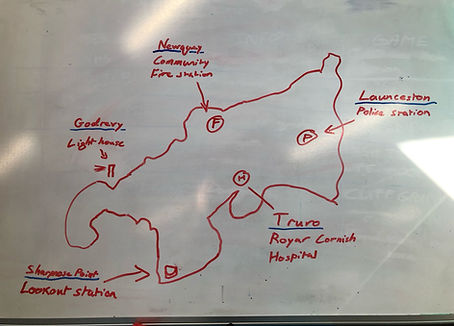 Newquay
Community
Fire station
Launceston
Police station
Godrevy
Light house
F
P
H
Truro
Royar Cornish
Hospital
Point
Lookout station